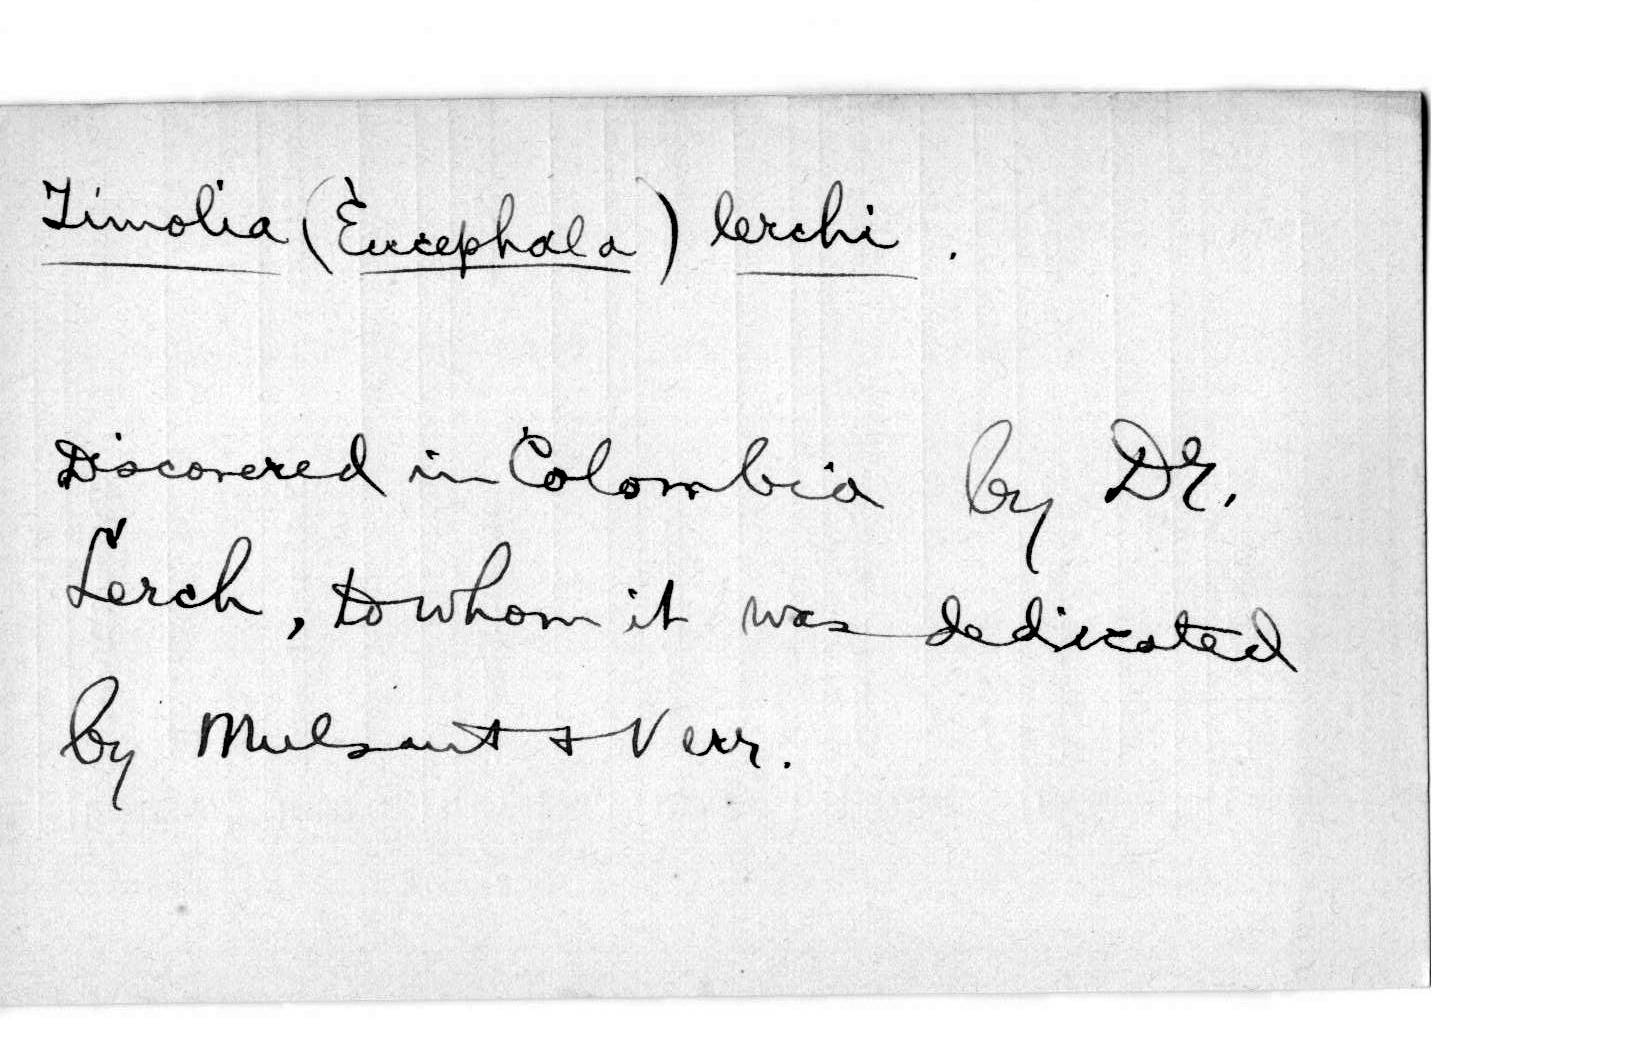 Timolia (Eucephala) lerchi.
Discovered in Colombia by Dr.
Lerch, to whom it was dedicated
by Mulsant & Verr.